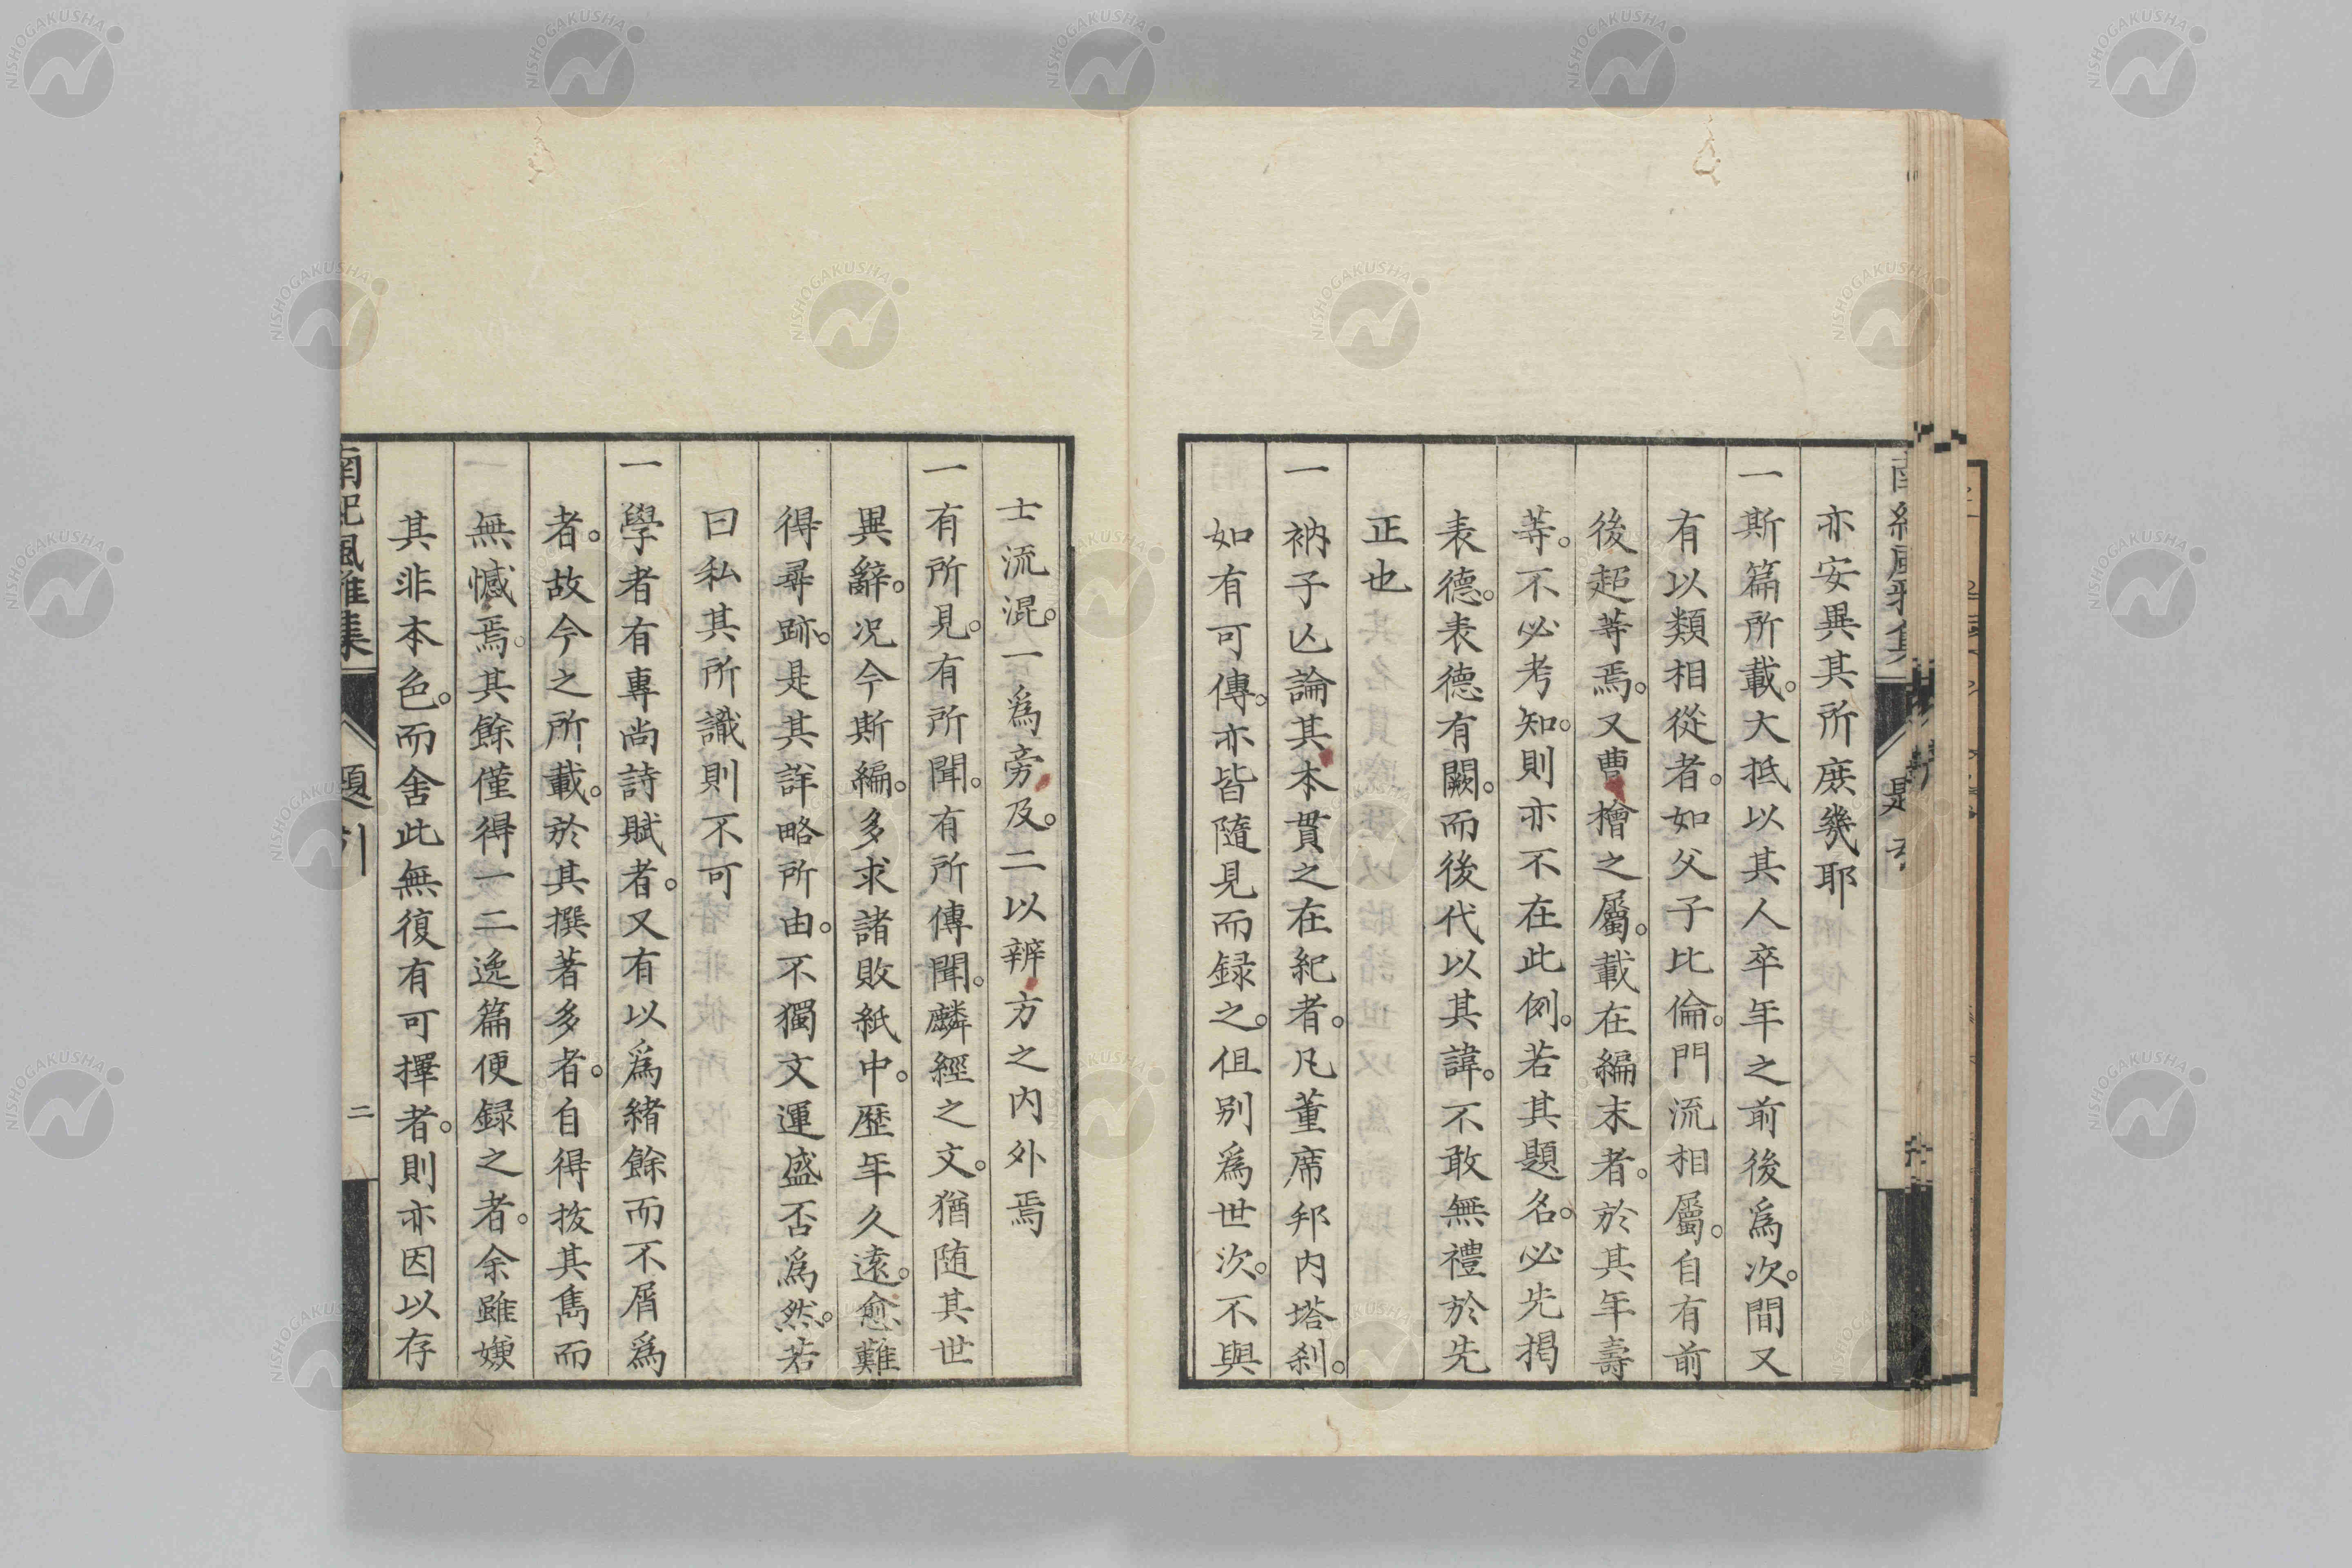 亦安異其所庶幾耶
一斯篇所載。大抵以其人卒年之前後爲次。間又
有以類相從者。如父子比倫。門流相屬。自有前
後超等焉。又曹檜之屬。載在編末者。於其年壽
等。不必考知。則亦不在此例。若其題名。必先揭
表德。表德有闕。而後代以其諱。不敢無禮於先
正也
一衲子亾論其本貫之在紀者。凡董席邦内塔刹。
如有可傳。亦皆隨見而録之。但別爲世次。不與
士流混。一爲旁及。二以辨方之内外焉
一有所見。有所聞。有所傳聞。麟經之文。猶随其世
異辭。况今斯編。多求諸敗紙中。歴年久遠。愈難
得尋跡。是其詳略所由。不獨文運盛否爲然。若
曰私其所識則不可
一學者有專尚詩賦者。又有以爲緒餘而不屑爲
者。故今之所載。於其撰著多者。自得拔其雋而
無憾焉。其餘僅得一二逸篇便録之者。余雖嫌
其非本色。而舍此無復有可擇者。則亦因以存
南紀風雅集
題引
二
NISHOGAKUSHA